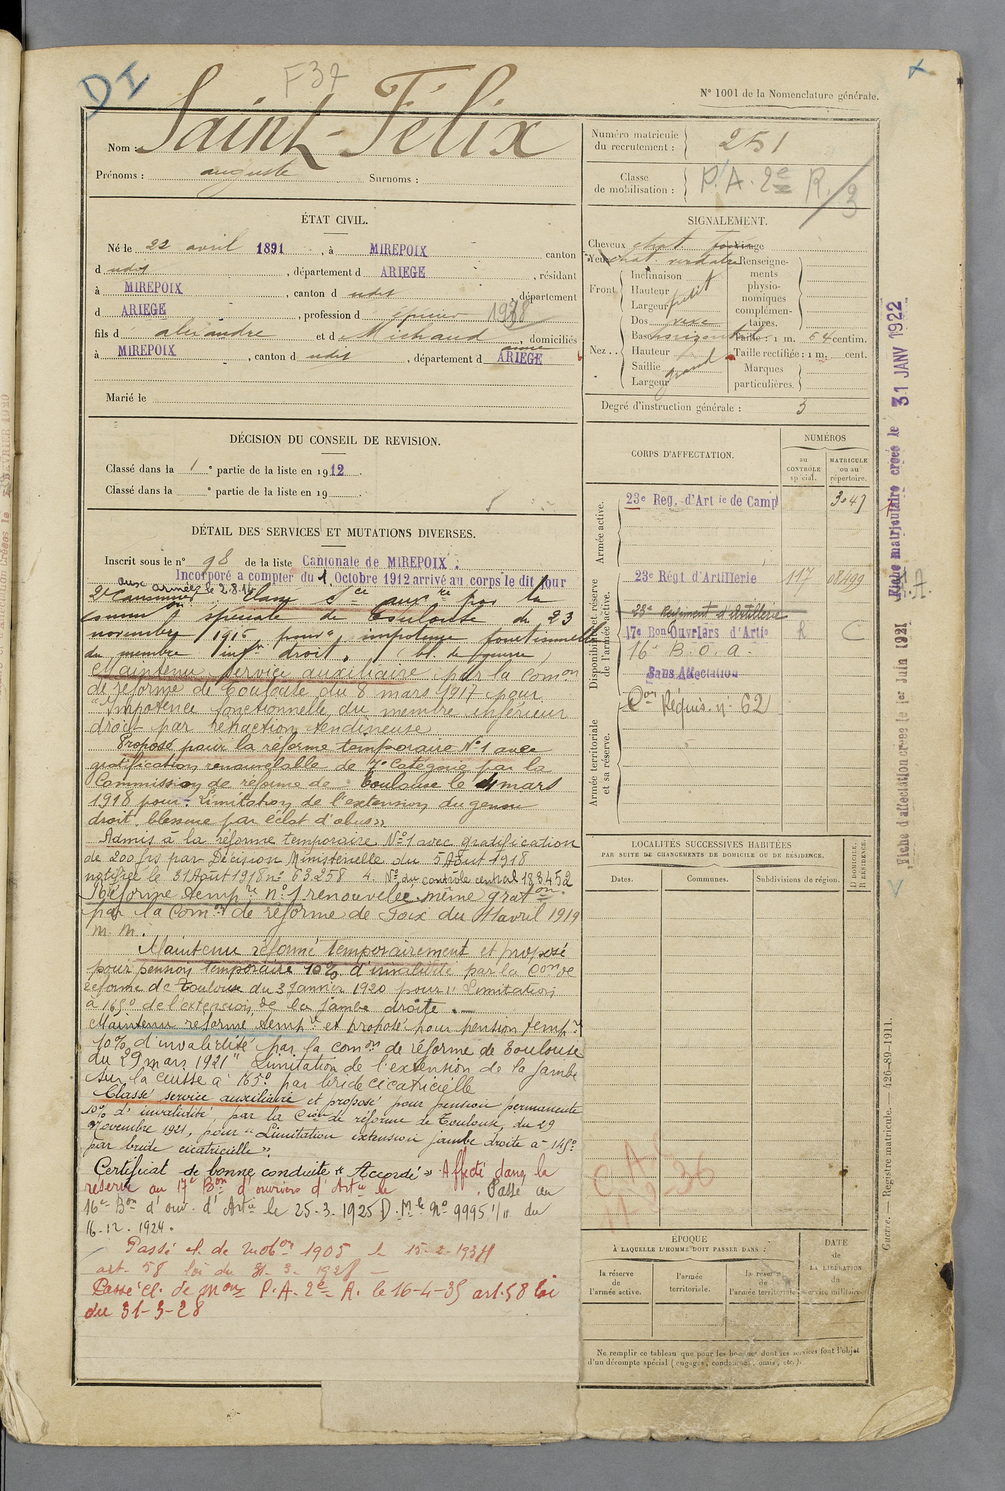 DI
F37
N° 1001 de la Nomenclature générale.
Nom : Saint-Félix
Prénoms : auguste Surnoms :
Numéro matricule du recrutement : 251
Classe de mobilisation : P.A. 2e R/3
ÉTAT CIVIL.
Né le 22 avril 1891, à MIREPOIX canton
d udit, département d ARIEGE, résidant
à MIREPOIX, canton d udit, département
d ARIEGE, profession d épicier 1928
fils d alexandre et d Michaud, domiciliés
à MIREPOIX, canton d udit, département d ARIEGE
Marié le
SIGNALEMENT.
Cheveux chat.
Yeux chat. verdatre
Front Inclinaison
Hauteur petit
Largeur
Nez Dos vexe
Base horizontal
Hauteur
Saillie grand
Largeur
Renseignements physionomiques complémentaires.
Taille : 1 m. 64 centim.
Taille rectifiée : 1 m. cent.
Marques particulières.
Degré d'instruction générale : 3
DÉCISION DU CONSEIL DE REVISION.
Classé dans la 1e partie de la liste en 1912.
Classé dans la e partie de la liste en 19
DÉTAIL DES SERVICES ET MUTATIONS DIVERSES.
Inscrit sous le n° 98 de la liste Cantonale de MIREPOIX.
Incorporé a compter du 1 Octobre 1912 arrivé au corps le dit jour
aux armées le 2.8.14
Classé Sce auxre par la
Comm on spéciale de Toulouse du 23
novembre 1916 pour impotence fonctionnelle
du membre infr droit. (bl. de guerre)
Maintenu service auxiliaire par la Comon
de réforme de Toulouse du 8 mars 1917 pour
"Impotence fonctionnelle du membre inférieur
droit par rétraction tendineuse
Proposé pour la réforme temporaire N°1 avec
gratification renouvelable de 7e Catégorie par la
Commission de réforme de Toulouse le 4 mars
1918 pour : Limitation de l'extension du genou
droit blessure par éclat d'obus »
Admis à la réforme temporaire N°1 avec gratification
de 200 frs par Décision Ministérielle du 5 Août 1918
notifiée le 31 Août 1918 n° 63258 4. N° du contrôle central 183452
Réforme tempre n°1 renouvelée même graton
par la Comon de réforme de Foix du 11 avril 1919
m. m.
Maintenu réformé temporairement et proposé
pour pension temporaire 10% d'invalidité par la Con de
réforme de Toulouse du 3 Janvier 1920 pour "Limitation
à 165° de l'extension de la jambe droite.
Maintenu réformé tempre et proposé pour pension tempre
10% d'invalidité par la comon de réforme de Toulouse
du 29 mars 1921 "Limitation de l'extension de la jambe
sur la cuisse à 165° par bride cicatricielle
Classé service auxiliaire et proposé pour pension permanente
10% d'invalidité, par la Cion de réforme de Toulouse, du 29
Novembre 1921, pour "Limitation extension jambe droite à 145°
par bride cicatricielle".
Certificat de bonne conduite « Accordé » Affecté dans la
réserve au 17e Bon d'ouvriers d'Artie le . Passé au
16e Bon d'ouv. d'Artie le 25.3.1925 D.Mle N° 9995 1/11 du
16.12.1924.
Passé cl. de mobon 1905 le 15-2-1931
art. 58 loi du 31.3.1928
Passé cl. de mon P.A. 2e R. le 16-4-35 art. 58 loi
du 31-3-28
CORPS D'AFFECTATION.
NUMÉROS
AU CONTRÔLE spécial.
MATRICULE ou au répertoire.
Armée active.
23e Reg. d'Artie de Camp 3047
Disponibilité et réserve de l'armée active.
23e Régt d'Artillerie 117 08499
23e Régiment d'Artillerie
17e Bon Ouvriers d'Artie R C
16e B.O.a.
Sans Affectation
Armée territoriale et sa réserve.
Réquis. n° 62
LOCALITÉS SUCCESSIVES HABITÉES
PAR SUITE DE CHANGEMENTS DE DOMICILE OU DE RÉSIDENCE.
Dates. Communes. Subdivisions de région. D DOMICILE. R RÉSIDENCE.
ÉPOQUE
À LAQUELLE L'HOMME DOIT PASSER DANS :
la réserve de l'armée active.
l'armée territoriale.
la réserve de l'armée territoriale
DATE de LA LIBÉRATION du service militaire.
Ne remplir ce tableau que pour les hommes dont les services font l'objet
d'un décompte spécial (engagés, condamnés, omis, etc.).
Guerre. — Registre matricule. — 426-89-1911.
Fiche matriculaire créée le 31 JANV 1922
Fiche d'affectation créée le 1er Juin 1921